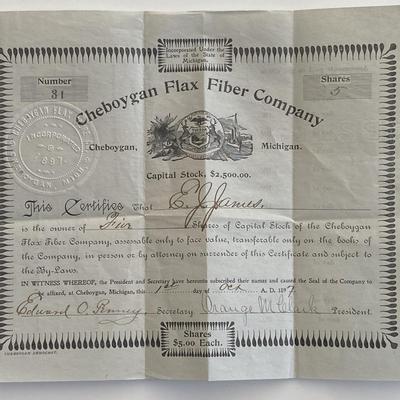 Incorporated Under the
Laws of the State of
Michigan.
Number
31
Shares
5
Cheboygan Flax Fiber Company
Cheboygan,
Michigan.
Capital Stock, $2,500.00.
INCORPORATED
1897
This Certifies That E. J. James,
is the owner of Five Shares of Capital Stock of the Cheboygan
Flax Fiber Company, assessable only to face value, transferable only on the books of
the Company, in person or by attorney on surrender of this Certificate and subject to
the By-Laws.
IN WITNESS WHEREOF, the President and Secretary have hereunto subscribed their names and caused the Seal of the Company to
be affixed, at Cheboygan, Michigan, this 1st day of Oct A. D. 1897
Edward O. Secretary Orange M. Clark President.
Shares
$5.00 Each.
CHEBOYGAN DEMOCRAT.